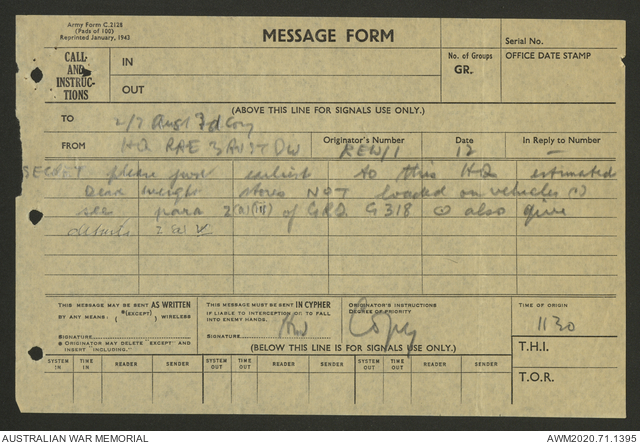 Army Form C.2128
(Pads of 100)
Reprinted January, 1943
MESSAGE FORM
Serial No.
CALL
AND
INSTRUC-
TIONS
IN
OUT
No. of Groups
GR.
OFFICE DATE STAMP
(ABOVE THIS LINE FOR SIGNALS USE ONLY.)
TO 2/7 Aust Fd Coy
FROM HQ RAE 3 AUST DIV
Originator's Number
REW/1
Date
12
In Reply to Number
—
SECRET please earliest to this HQ estimated
weight stores NOT loaded on vehicles (.)
see para 2(a)(iii) of GRO G 318 also give
THIS MESSAGE MAY BE SENT AS WRITTEN
BY ANY MEANS. { *(EXCEPT) } WIRELESS
SIGNATURE
* ORIGINATOR MAY DELETE EXCEPT AND
INSERT "INCLUDING."
THIS MESSAGE MUST BE SENT IN CYPHER
IF LIABLE TO INTERCEPTION OR TO FALL
INTO ENEMY HANDS.
SIGNATURE
ORIGINATOR'S INSTRUCTIONS
DEGREE OF PRIORITY
Copy
TIME OF ORIGIN
1130
T.H.I.
T.O.R.
(BELOW THIS LINE IS FOR SIGNALS USE ONLY.)
SYSTEM IN TIME IN READER SENDER SYSTEM OUT TIME OUT READER SENDER SYSTEM OUT TIME OUT READER SENDER
AUSTRALIAN WAR MEMORIAL
AWM2020.71.1395